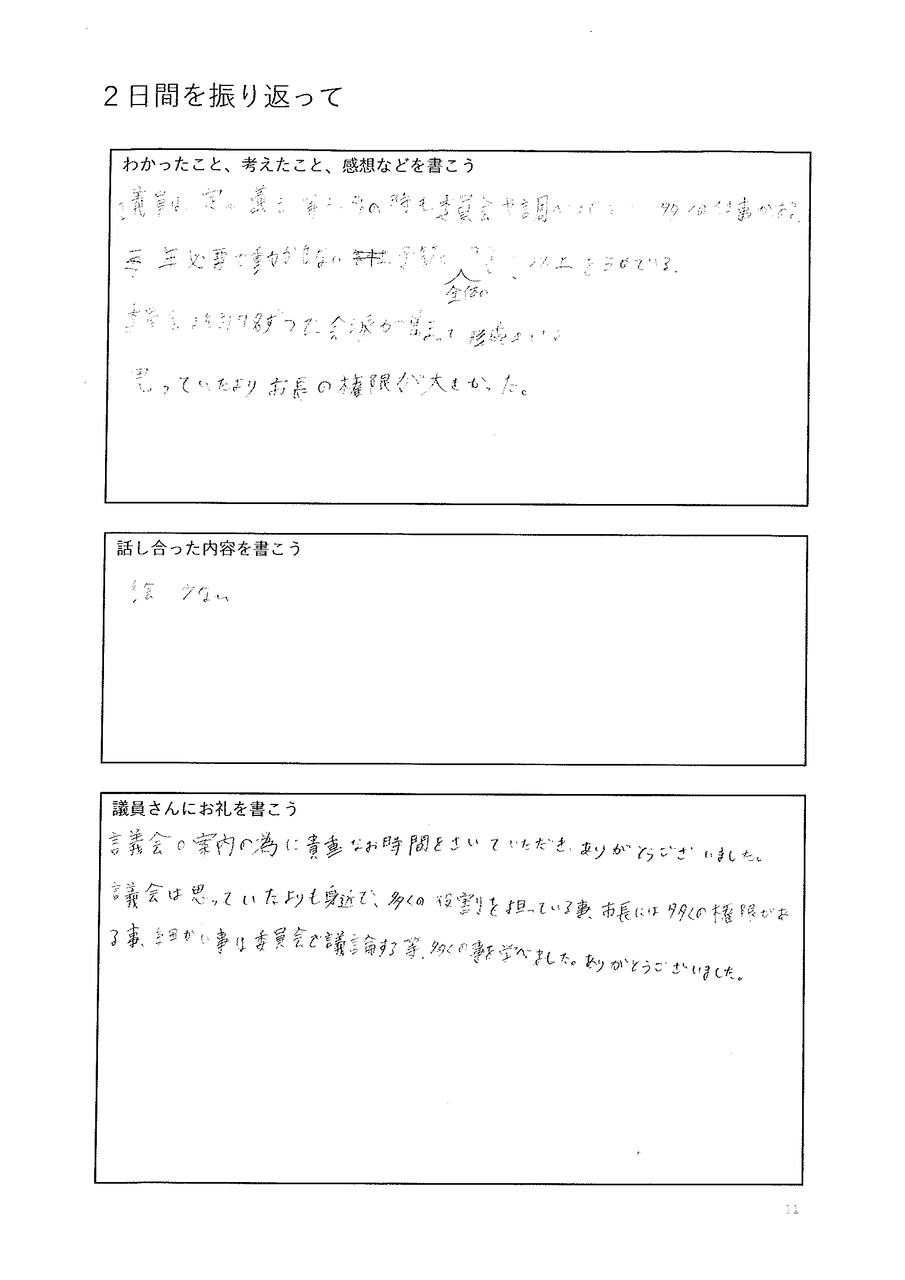 2日間を振り返って
わかったこと、考えたこと、感想などを書こう
議員は 定 議 の時も委員会や調べ 多くの仕事がある。
毎年必要で動かせない 予算 全体の 以上を占めている。
ずつで、会派が集まって 形成
思っていたより市長の権限が大きかった。
話し合った内容を書こう
絵 少ない
議員さんにお礼を書こう
議会の案内の為に貴重なお時間をさいていただき、ありがとうございました。
議会は思っていたよりも身近で、多くの役割を担っている事、市長には多くの権限があ
る事、細かい事は委員会で議論する等、多くの事を学べました。ありがとうございました。
11